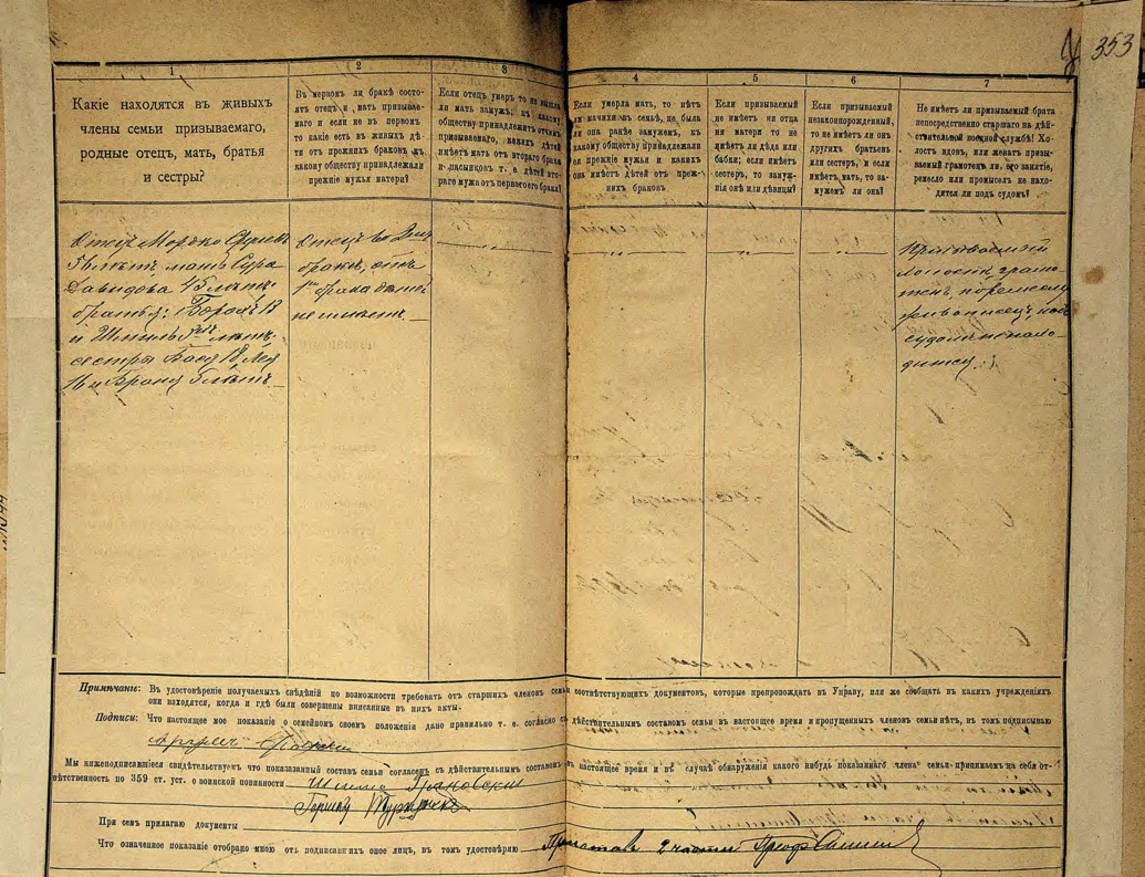 353
1
2
3
4
5
6
7
Какіе находятся въ живыхъ
члены семьи призываемаго,
родные отецъ, мать, братья
и сестры?
Въ первомъ ли бракѣ состо-
ятъ отецъ и мать призывае-
маго и если не въ первомъ
то какіе есть въ живыхъ дѣ-
ти отъ прежнихъ браковъ, къ
какому обществу принадлежали
прежніе мужья матери?
Если отецъ умеръ то не вышла
ли мать замужъ; къ какому
обществу принадлежитъ отчимъ
призываемаго, какихъ дѣтей
имѣетъ мать отъ втораго брака
и пасынковъ т. е. дѣтей вто-
раго мужа отъ перваго его брака?
Если умерла мать, то нѣтъ
ли мачихи въ семьѣ, не была
ли она ранѣе замужемъ, къ
какому обществу принадлежали
ея прежніе мужья и какихъ
она имѣетъ дѣтей отъ преж-
нихъ браковъ
Если призываемый
не имѣетъ ни отца
ни матери то не
имѣетъ ли дѣда или
бабки; если имѣетъ
сестеръ, то замуж-
нія онѣ или дѣвицы?
Если призываемый
незаконнорожденный,
то не имѣетъ ли онъ
другихъ братьевъ
или сестеръ, и если
имѣетъ, мать, то за-
мужемъ ли она?
Не имѣетъ ли призываемый брата
непосредственно старшаго на дѣй-
ствительной военной службѣ? Хо-
лостъ, вдовъ, или женатъ призы-
ваемый грамотенъ ли, его занятіе,
ремесло или промыселъ не нахо-
дится ли подъ судомъ?
Отецъ Мордко
лѣтъ мать Сура
Давидова 45 лѣтъ
братья: Борохъ 13
и Шмиль лѣтъ
сестры Бася 18 Лея
11 и Броня 5 лѣтъ
Отецъ во 2мъ
бракѣ, отъ
1го брака дѣтей
не имѣетъ
Призываемый
холостъ, грамо-
тенъ, по ремеслу
живописецъ, подъ
судомъ не нахо-
дится.
Примѣчаніе: Въ удостовѣреніе получаемыхъ свѣдѣній по возможности требовать отъ старшихъ членовъ семьи соотвѣтствующихъ документовъ, которые препровождать въ Управу, или же сообщать въ какихъ учрежденіяхъ
они находятся, когда и гдѣ были совершены вписанные въ нихъ акты.
Подписи: Что настоящее мое показаніе о семейномъ своемъ положеніи дано правильно т. е. согласно съ дѣйствительнымъ составомъ семьи въ настоящее время и пропущенныхъ членовъ семьи нѣтъ, въ томъ подписываю
Мы нижеподписавшіеся свидѣтельствуемъ что показанный составъ семьи согласенъ съ дѣйствительнымъ составомъ въ настоящее время и въ случаѣ обнаруженія какого нибудь показаннаго члена семьи принимаемъ на себя от-
вѣтственность по 359 ст. уст. о воинской повинности Грановский
Гершка
При семъ прилагаю документы
Что означенное показаніе отобрано мною отъ подписавшихъ оное лицъ, въ томъ удостовѣряю Приставъ 2 части